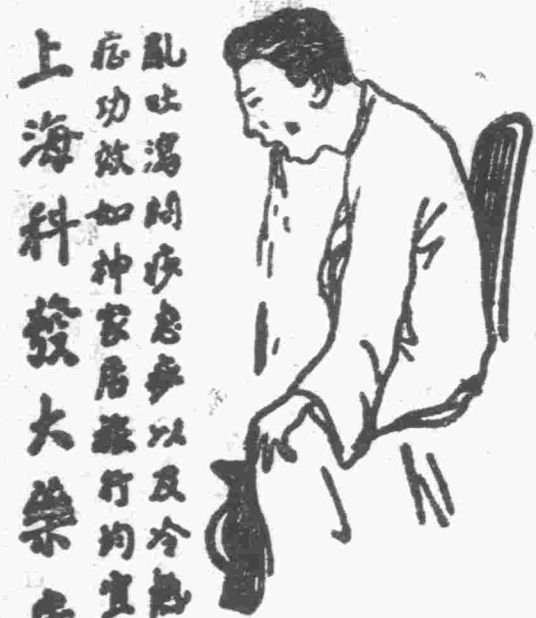 亂吐瀉悶痧急痧以及冷熱
症功效如神家居旅行均宜
上海科發大藥